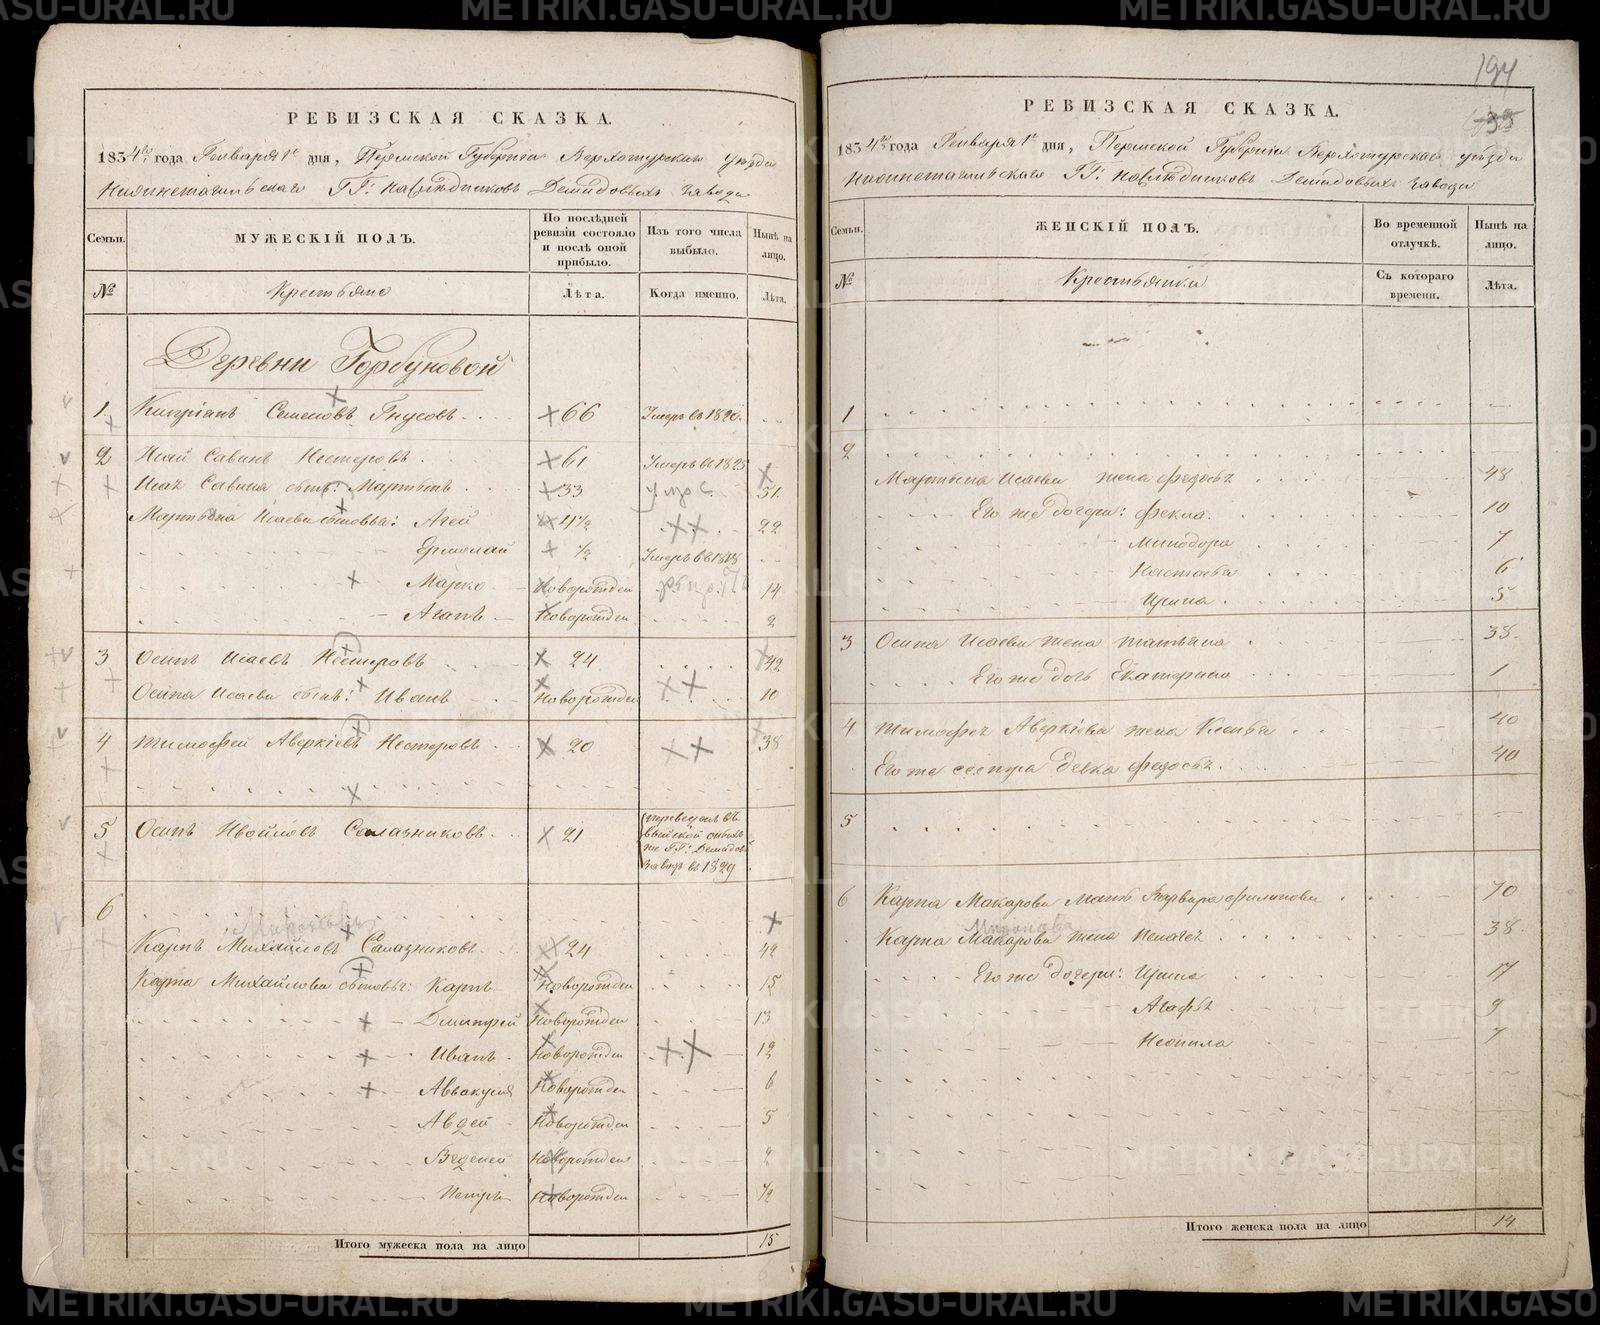 РЕВИЗСКАЯ СКАЗКА.
1834го года Генваря 1е дня, Пермской Губерніи Верхотурскаго уѣзда
Нижнетагильскаго ГГ: наслѣдниковъ Демидовыхъ завода
Семьи. МУЖЕСКІЙ ПОЛЪ. По послѣдней ревизіи состояло и послѣ оной прибыло. Изъ того числа выбыло. Нынѣ на лицо.
№ Крестьяне Лѣта. Когда именно. Лѣта.
Деревни Горбуновой
1. Кипріанъ Семеновъ Гнусовъ 66 Умеръ въ 1820.
2 Исай Савинъ Нестеровъ 61 Умеръ въ 1823
Исая Савина сынъ: Мартынъ 33 умре 51.
Мартына Исаева сыновья: Агей 4½ 22
Ермолай ½ Умеръ въ 1818
Марко Новорожден 14
Агапъ Новорожден 2
3 Осипъ Исаевъ Нестеровъ 24 42
Осипа Исаева сынъ: Иванъ Новорожден 10
4 Тимофей Аверкіевъ Нестеровъ 20 38
5 Осипъ Салазниковъ 21 переведенъ въ Выйской оныхъ же ГГ: Демидов Заводъ въ 1829
6
Карпъ Михайловъ Салазниковъ 24 42
Карпа Михайлова сыновья: Карпъ Новорожден 15
Дмитрей Новорожден 13
Иванъ Новорожден 12
Аввакумъ Новорожден 6
Авдей Новорожден 5
Веденей Новорожден 2
Петръ Новорожден ½
Итого мужеска пола на лицо 15
194
РЕВИЗСКАЯ СКАЗКА.
1834го года Генваря 1е дня, Пермской Губерніи Верхотурскаго уѣзда
Нижнетагильскаго ГГ: наслѣдниковъ Демидовыхъ завода
Семьи. ЖЕНСКІЙ ПОЛЪ. Во временной отлучкѣ. Нынѣ на лицо.
№ Крестьянки Съ котораго времени. Лѣта.
1
2
Мартына Исаева жена Федосья 48
Его же дочери: Фекла 10
Минодора 7
Настасья 6
Ирина 5
3 Осипа Исаева жена Татьяна 38.
Его же дочь Екатерина 1
4 Тимофея Аверкіева жена Ксенья 40
Его же сестра девка Федосья 40
5
6 Карпа Макарова мать Варвара Филипова 70
Карпа Макарова жена Пелагея 38
Его же дочери: Ирина 17
Агафья 9
Неонила 7
Итого женска пола на лицо 14
METRIKI.GASO-URAL.RU